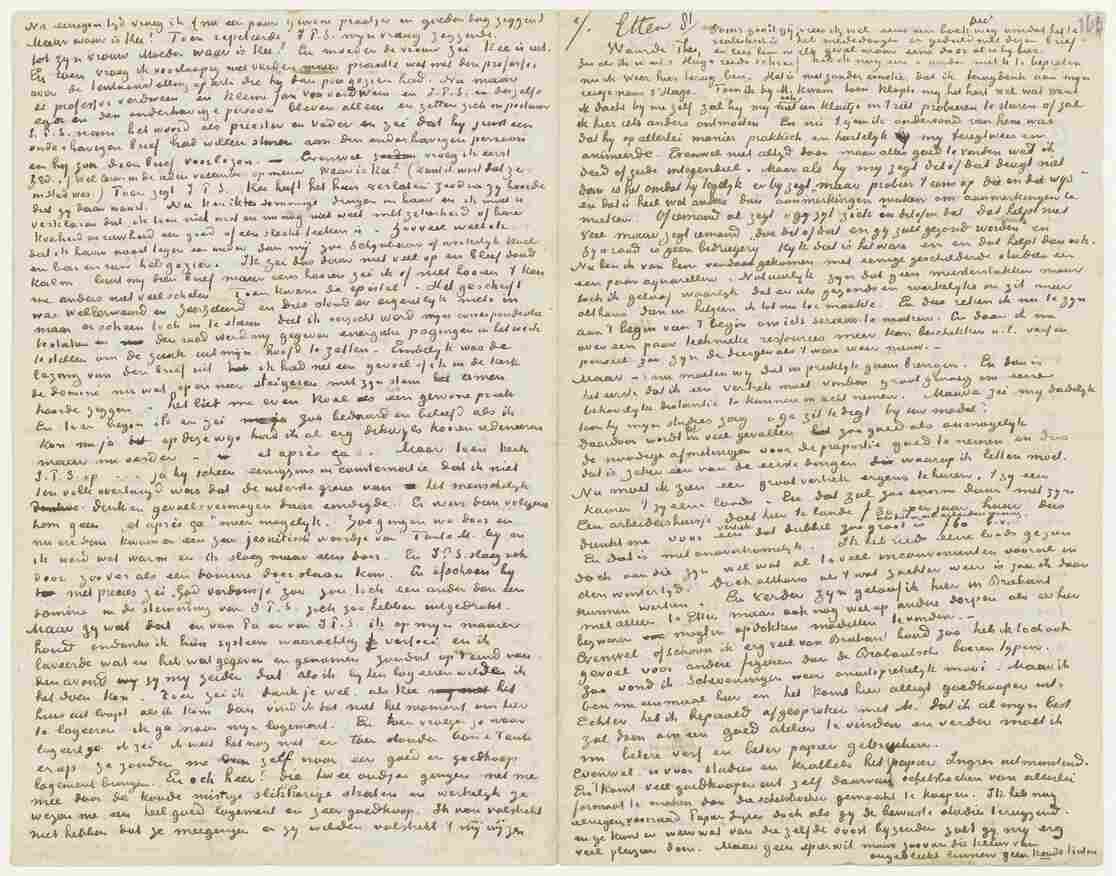 Na eenigen tijd vroeg ik (na een paar gewone praatjes en goeden dag zeggen)
Maar waar is Kee? Toen repeteerde J.P.S. mijn vraag zeggende
tot zyn vrouw Moeder waar is Kee? En moeder de vrouw zei Kee is uit.
En toen vroeg ik voorloopig niet verder maar praatte wat met den professor
over de tentoonstelling op Arti die hy dan pas gezien had. Nu maar
de professor verdween en kleine Jan Vos verdween en J.P.S. en deszelfs
ega en den onderhavige persoon bleven alleen en zetten zich in postuur
J.P.S. nam het woord als priester en vader en zei dat hy juist een
brief had willen sturen aan den onderhavigen persoon
en hy zou dien brief voorlezen. — Evenwel vroeg ik eerst
op nieuw waar is Kee? (want ik wist dat ze
in stad was.) Toen zegt J.P.S. Kee heeft het huis verlaten zoodra zy hoorde
dat gy daar waart. Nu ken ik sommige dingen in haar en ik moet u
verklaren dat ik toen niet wist en nu nog niet weet met zekerheid of hare
koelheid en ruwheid een goed of een slecht teeken is. Zooveel weet ik
dat ik haar nooit tegen een ander dan my zoo schynbaar of werkelyk koel
en bar en ruw heb gezien. Ik zei dus daar niet veel op en bleef dood
kalm. Laat my dien brief maar eens hooren zei ik of niet hooren 't kan
me anders niet veel schelen. Toen kwam de epistel. Het geschrift
was weleerwaard en zeergeleerd en dus stond er eigenlyk niets in
maar er scheen toch in te staan dat ik verzocht werd myne correspondentie
te staken en den raad werd my gegeven energieke pogingen in het werk
te stellen om de zaak uit mijn hoofd te zetten. Eindelyk was de
lezing van den brief uit. Ik had net een gevoel of ik in de kerk
de domine na wat op en neer steigeren met zyn stem amen
hoorde zeggen. het liet me even koel als een gewone preek
En toen begon ik en zei zoo bedaard en beleefd als ik
kon nu ja op deze wys had ik al erg dikwyls hooren redeneeren
maar nu verder — et après ça. Maar toen keek
J.P.S. op ... ja hy scheen eenigszins in consternatie dat ik niet
ten volle overtuigd was dat de uiterste grens van het menschelyk
denk en gevoelsvermogen daar eindigde. Er was dan volgens
hem geen „et après ça” meer mogelyk. Zoo gingen we door en
nu en dan kwam er een woordje van Tante M. by en
ik werd wat warm en ik sloeg maar eens door. En J.P.S. sloeg ook
door zoo ver als een domine doorslaan kan. En ofschoon hy
niet precies zei God verdomme zou toch een ander dan een
domine in de stemming van J.P.S. zich zoo hebben uitgedrukt.
Maar gy weet dat en van Pa en van J.P.S. ik op myn manier
houd ondanks ik hun systeem waarachtig verfoei en ik
laveerde wat en het wat gegeven en genomen zoodat op 't eind van
den avond zy my zeiden dat als ik by hen logeeren wilde ik
het doen kon. Toen zei ik dank je wel. als Kee het
huis uitloopt als ik kom dan vind ik dat niet het moment om hier
te logeeren ik ga naar myn logement. En toen vroegen ze waar
logeert ge. ik zei ik weet het nog niet en toen stonden Oom & Tante
er op ze zouden me zelf naar een goed en goedkoop
logement brengen. En och heer! die twee oudjes gingen met me
mee door de koude mistige slikkerige straten en werkelyk ze
wezen me een heel goed logement en zeer goedkoop. Ik wou volstrekt
niet hebben dat ze meegingen en zy wilden volstrekt 't my wyzen
Etten
Waarde Theo,
Soms geloof ik vrees ik wel eens een boek weg omdat het te
realistisch is. heb mededoogen en geduld met dezen brief
en lees hem in elk geval maar eens door al is hy hier
Zooals ik u uit 's Hage reeds schreef heb ik nog een en ander met u te bepraten
nu ik weer hier terug ben. Het is niet zonder emotie, dat ik terugdenk aan myn
reisje naar 's Hage. Toen ik by M. kwam toen klopte my het hart wel wat want
ik dacht by me zelf zal hy my ook met een kluitje in 't riet probeeren te sturen of zal
ik hier iets anders ontmoeten. En nu 't geen ik ondervond van hem was
dat hy op allerlei manier praktisch en hartelyk my terechtwees en
animeerde. Evenwel niet altyd door maar alles goed te vinden wat ik
deed of zeide integendeel. Maar als hy my zegt dit of dat deugt niet
dan is het omdat hy tegelyk er by zegt maar probeer 't eens op die en die wijs —
en dat is heel wat anders dan aanmerkingen maken om aanmerkingen te
maken. Of iemand al zegt „gy zyt ziek en dit of dat” dat helpt niet
veel maar zegt iemand, doe dit of dat en gy zult gezond worden en
zyn raad is geen bedriegery kyk dat is het ware en en dat helpt dan ook.
Nu ben ik van hem vandaan gekomen met eenige geschilderde studies en
een paar aquarellen. Natuurlyk zyn dat geen meesterstukken maar
toch ik geloof waarlyk dat er iets gezonds en werkelyks in zit meer
althans dan in hetgeen ik tot nu toe maakte. En dus reken ik nu te zyn
aan 't begin van 't begin om iets serieus te maken. En daar ik nu
over een paar technieke ressources meer kan beschikken n.l. verf en
penseel zoo zyn de dingen als 't ware weer nieuw. —
Maar — nu moeten wy dat in praktyk gaan brengen. En dan is
het eerste dat ik een vertrek moet vinden groot genoeg om eene
behoorlyke distantie te kunnen in acht nemen. Mauve zei my dadelyk
toen hy mijn studies zag „ge zit te digt by uw model.”
Daardoor wordt het in veel gevallen zoo goed als onmogelyk
de noodige afmetingen voor de proportie goed te nemen en dus
dat is zeker een van de eerste dingen waarop ik letten moet.
Nu moet ik zien een groot vertrek ergens te huren, 't zy een
kamer 't zy eene loods. En dat zal zoo enorm duur niet zyn.
Een arbeidershuisje doet hier te lande ƒ 30 per jaar huur dus
dunkt me voor een vertrek dat dubbel zoo groot is als dat van een arbeiderswoning ƒ 60 b.v.
En dat is niet onoverkomelyk. Ik heb reeds eene loods gezien
doch aan die zyn wel wat al te veel inconvenienten vooral in
den wintertyd. Doch althans als 't wat zachter weer is zou ik daar
kunnen werken. En verder zyn geloof ik hier in Brabant
niet alleen te Etten maar ook nog wel op andere dorpen als er hier
bezwaar mogten opdokken modellen te vinden. —
Evenwel ofschoon ik erg veel van Brabant houd zoo heb ik toch ook
gevoel voor andere figuren dan de Brabantsch boeren typen.
Zoo vond ik Scheveningen weer onuitsprekelyk mooi. Maar ik
ben nu eenmaal hier en het komt hier allicht goedkooper uit.
Echter heb ik bepaald afgesproken met M. dat ik al myn best
zal doen om een goed atelier te vinden en verder moet ik
nu betere verf en beter papier gebruiken.
Evenwel voor studies en krabbels is het papier Ingres uitmuntend.
En 't komt veel goedkooper uit zelf daarvan schetsboeken van allerlei
formaat te maken dan die schetsboeken gemaakt te koopen. Ik heb nog
een weinig voorraad Papier Ingres doch als gy de bewuste studie terugzend
en ge kunt er wat van die zelfde soort byzenden zult gy my erg
veel pleizier doen. Maar geen spierwit maar zoo van die kleur van
ongebleekt linnen geen koude tinten